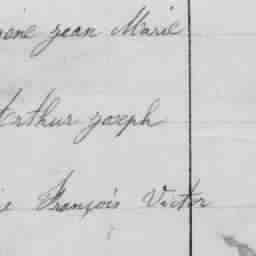 Jean Marie
Arthur Joseph
François Victor